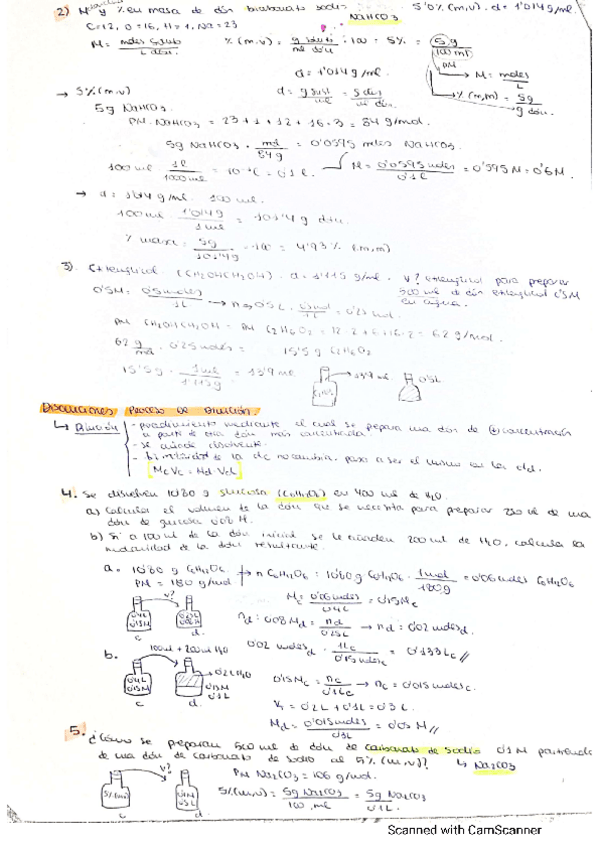 2) M y % en masa de dón bicarbonato sodio 5'0% (m,v). d = 1'014 g/ml.
NaHCO3
C=12, O=16, H=1, Na=23
M = moles soluto / L dón. % (m,v) = g soluto / ml dón · 100 = 5% = 5 g / 100 ml
PM
M = moles / L
d = 1'014 g/ml.
→ 5% (m,v) d = g sust / ml = g dón / ml dón. % (m,m) = 5g / g dón.
5g NaHCO3.
PM NaHCO3 = 23 + 1 + 12 + 16·3 = 84 g/mol.
5g NaHCO3 · mol / 84g = 0'0595 moles NaHCO3.
100 ml · 1l / 1000 ml = 0'1 l. M = 0'0595 moles / 0'1 l = 0'595 M = 0'6 M.
→ d = 1'014 g/ml 100 ml.
100 ml · 1'014 g / 1 ml = 101'4 g dón.
% masa = 5g / 101'4g · 100 = 4'93% (m,m)
3) Etilenglicol (CH2OHCH2OH). d = 1'115 g/ml. V? etilenglicol para preparar
500 ml de dón etilenglicol 0'5M
en agua.
0'5M = 0'5 moles / 1L → n = 0'5L · 0'5 mol / 1L = 0'25 mol.
PM CH2OHCH2OH = PM C2H6O2 = 12·2 + 6 + 16·2 = 62 g/mol.
62 g / mol · 0'25 moles = 15'5 g C2H6O2
15'5g · 1 ml / 1'115g = 13'9 ml
13'9 ml. 0'5L
Disoluciones Proceso de Dilución.
↳ Dilución - procedimiento mediante el cual se prepara una dón de concentración
a partir de otra dón más concentrada.
- se añade disolvente.
- no cambia. pasa a ser el mismo en la d.
Mc Vc = Md Vd
4. Se disuelven 10'80 g glucosa (C6H12O6) en 400 ml de H2O.
a) Calcular el volumen de la dón que se necesita para preparar 250 ml de una
dón de glucosa 0'08 M.
b) Si a 100 ml de la dón inicial se le añaden 200 ml de H2O, calcula la
molaridad de la dón resultante.
a. 10'80 g C6H12O6 → n C6H12O6 = 10'80g C6H12O6 · 1 mol / 180g = 0'06 moles C6H12O6
PM = 180 g/mol
V? Mc = 0'06 moles / 0'4L = 0'15 Mc
0'4L 0'15M 0'25L 0'08M nd: 0'08 Md = nd / 0'25L → nd = 0'02 moles d.
c d. 0'02 moles d · 1Lc / 0'15 moles c = 0'133 Lc //
b. 100 ml + 200 ml H2O
0'4L 0'15M 0'2L H2O 0'15M 0'1L 0'15Mc = nc / 0'1Lc → nc = 0'015 moles c.
c d. V = 0'2L + 0'1L = 0'3L.
Md = 0'015 moles / 0'3L = 0'05 M //
5. ¿Cómo se preparan 500 ml de dón de carbonato de sodio 0'1M partiendo
de una dón de carbonato de sodio al 5% (m,v)? ↳ Na2CO3
V? PM Na2CO3 = 106 g/mol.
5% (m,v) 5% (m,v) = 5g Na2CO3 / 100 ml = 5g Na2CO3 / 0'1L.
c d.
Scanned with CamScanner